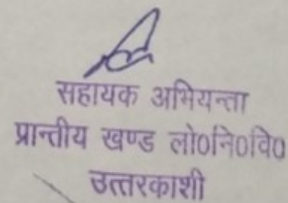 सहायक अभियन्ता
प्रान्तीय खण्ड लो0नि0वि0
उत्तरकाशी